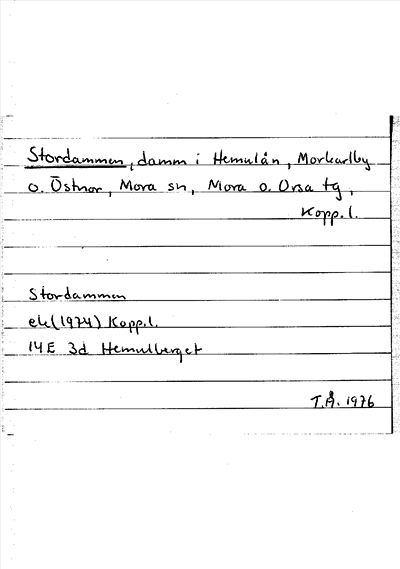 Stordammen, damm i Hemulån, Morkarlby
o. Östnor, Mora sn, Mora o. Orsa tg,
Kopp.l.
Stordammen
ek(1974) Kopp.l.
14E 3d Hemulberget
T.Å. 1976